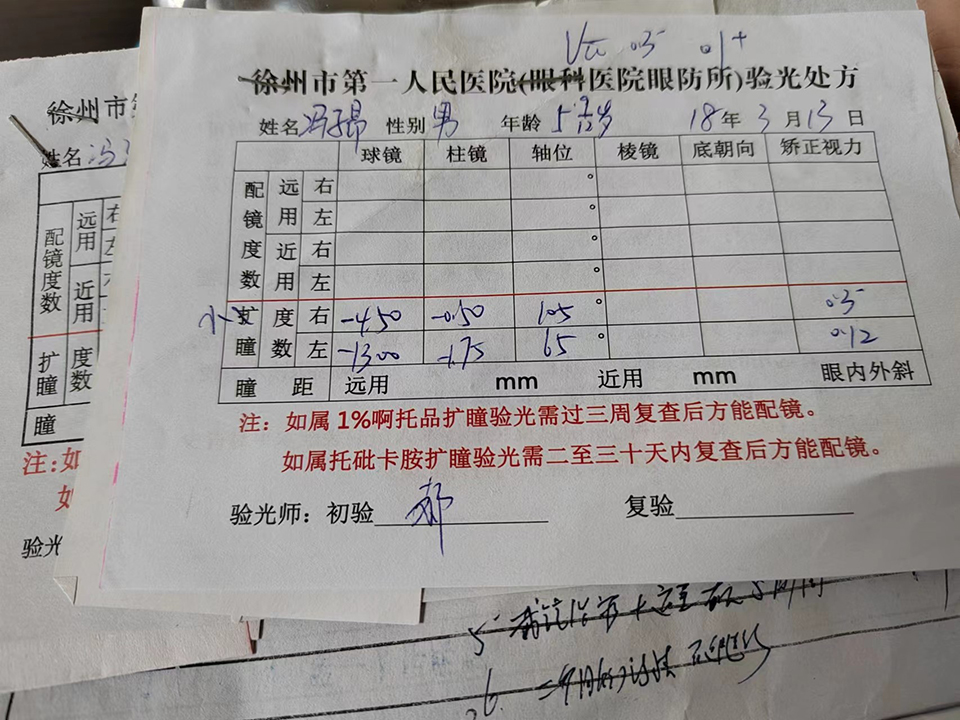 Vcc 0.5 0.1+
徐州市第一人民医院(眼科医院眼防所)验光处方
姓名 冯子昂 性别 男 年龄 5岁 18年3月13日
球镜 柱镜 轴位 棱镜 底朝向 矫正视力
配镜度数 远用 右 °
左 °
近用 右 °
左 °
小 扩瞳 度数 右 -4.50 -0.50 105 ° 0.5
左 -13.00 -1.75 65 ° 0.12
瞳 距 远用 mm 近用 mm 眼内外斜
注: 如属1%啊托品扩瞳验光需过三周复查后方能配镜。
如属托砒卡胺扩瞳验光需二至三十天内复查后方能配镜。
验光师: 初验 郝 复验
徐州市
姓名 冯
配镜度数 远用 右
左
近用
扩瞳 度数
瞳
注:如
如
验光
5
6.